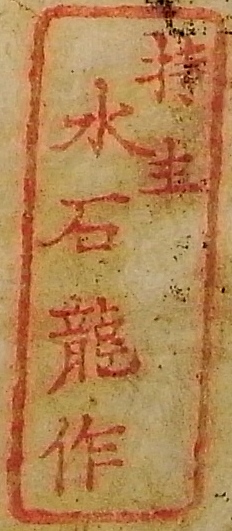 持主
水石龍作